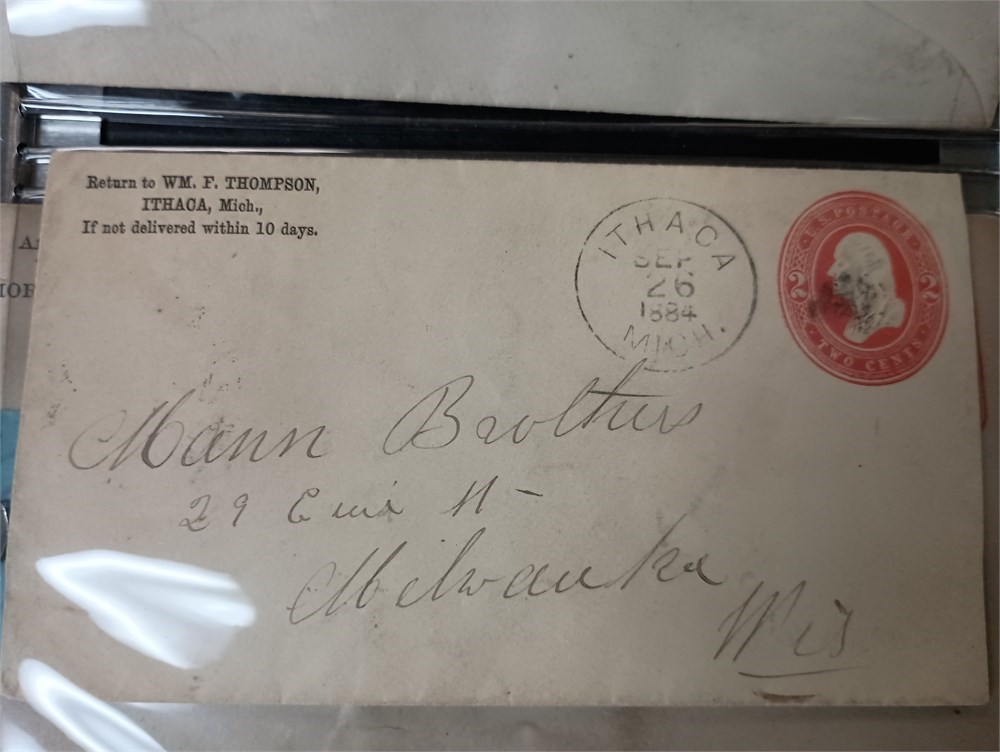 Return to WM. F. THOMPSON,
ITHACA, Mich.,
If not delivered within 10 days.
ITHACA
SEP
26
1884
MICH.
U.S. POSTAGE
2 2
TWO CENTS
Mann Brothers
29 St -
Milwaukee
Wis